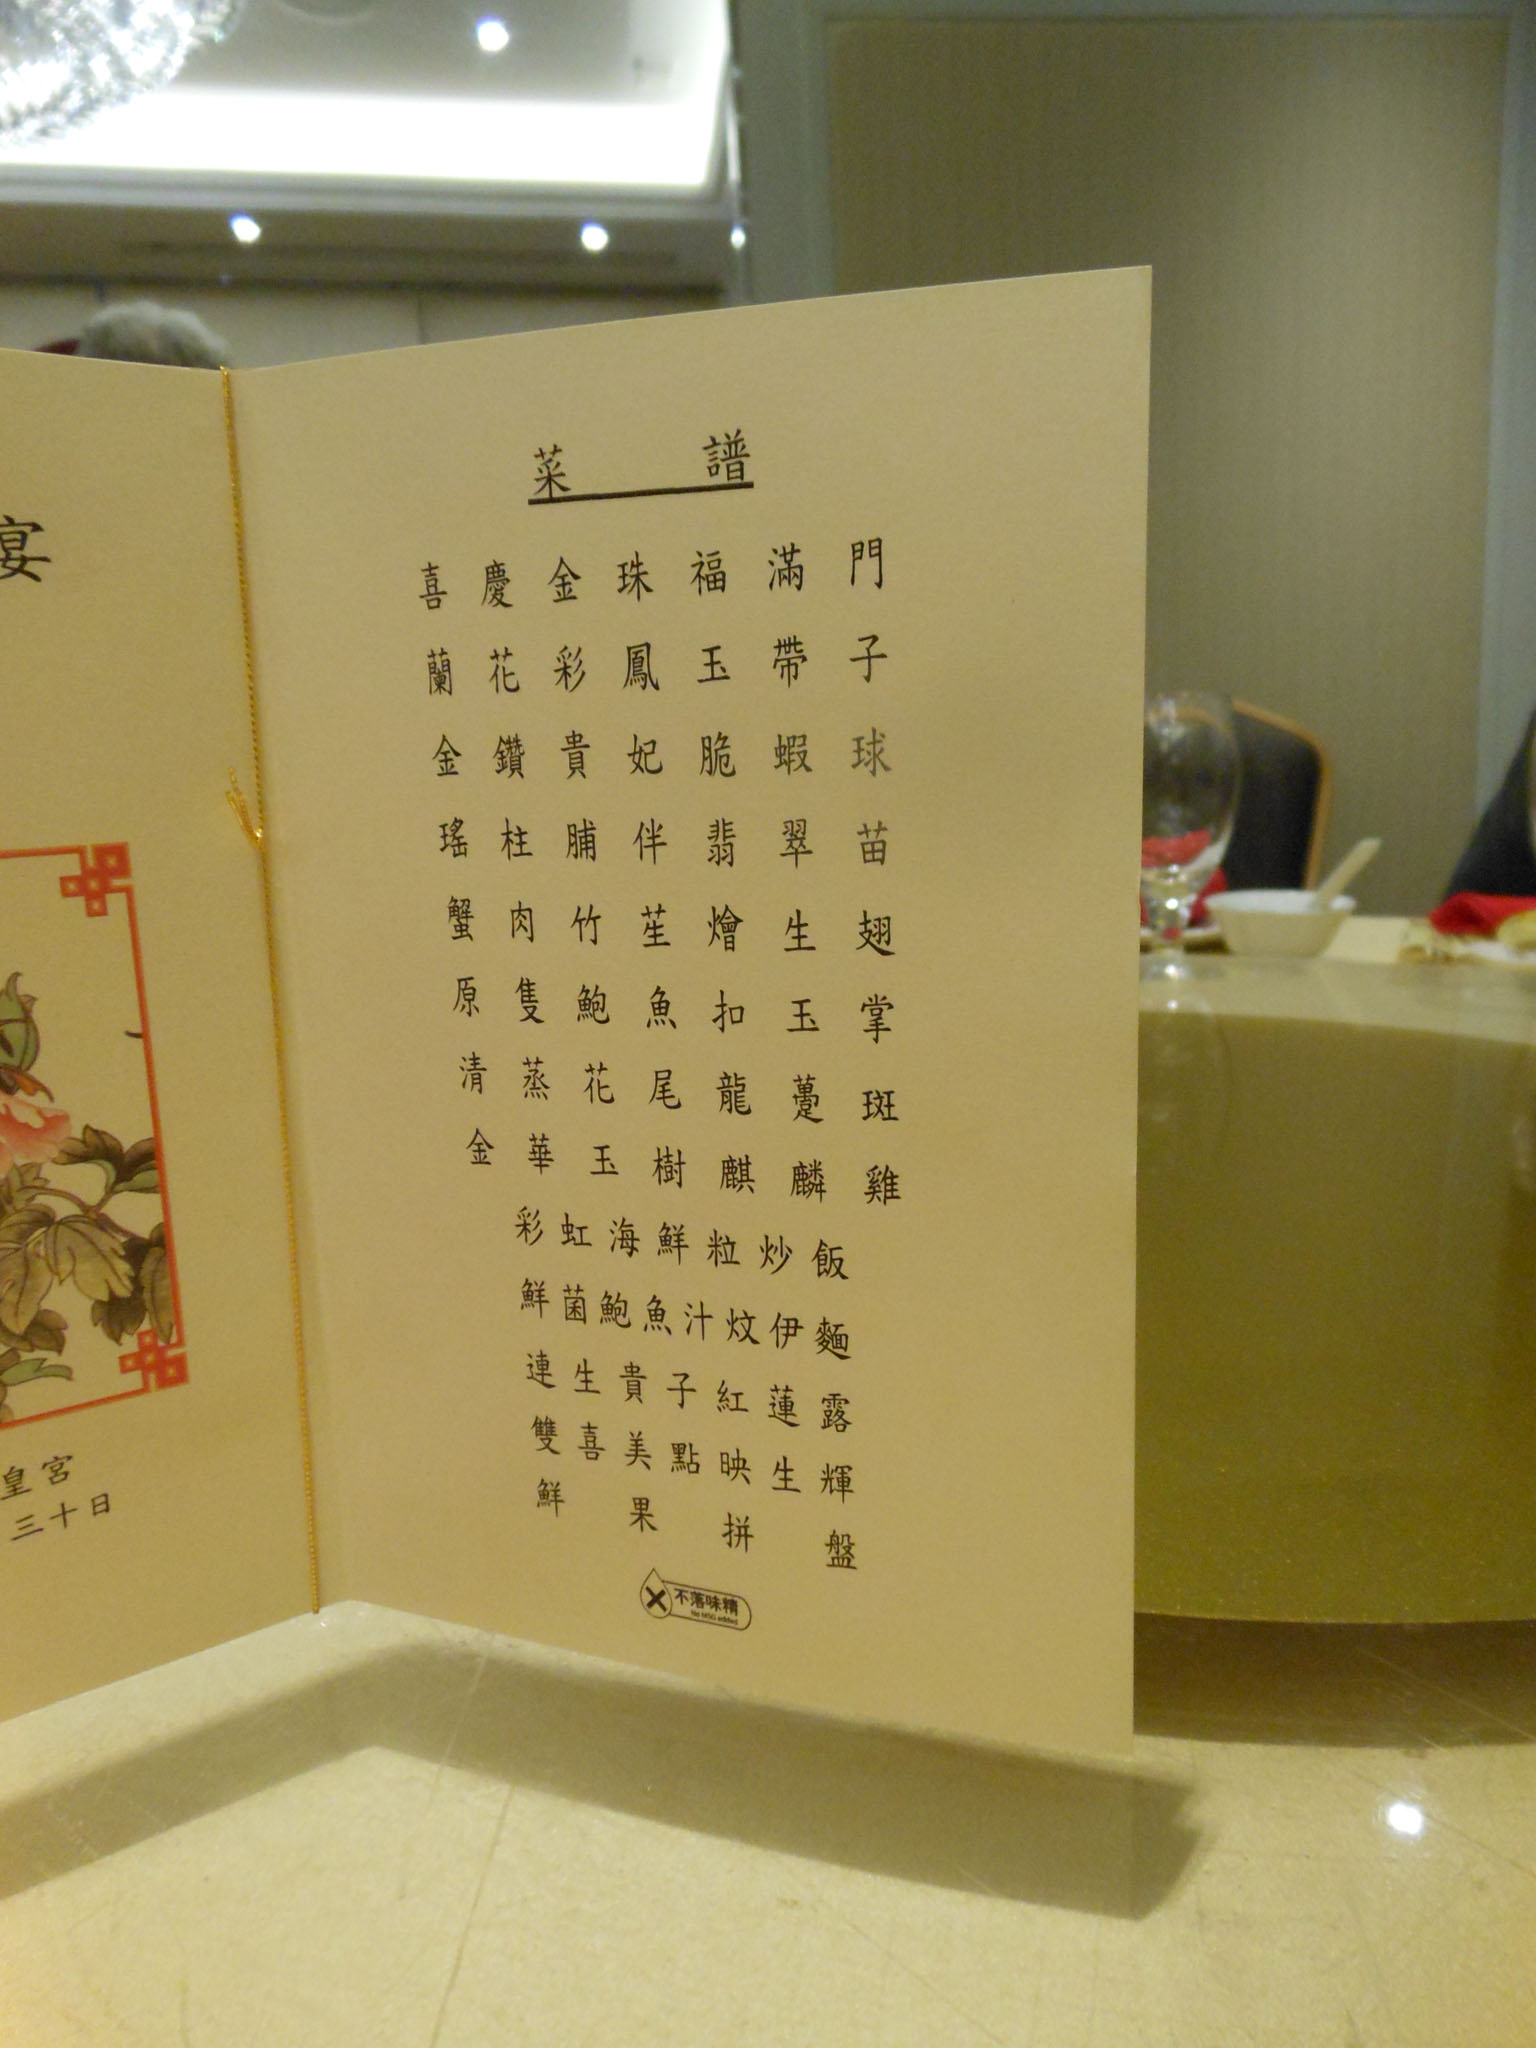 宴
皇宮
三十日
菜譜
喜慶金珠福滿門
蘭花彩鳳玉帶子
金鑽貴妃脆蝦球
瑤柱脯伴翡翠苗
蟹肉竹笙燴生翅
原隻鮑魚扣玉掌
清蒸花尾龍躉斑
金華玉樹麒麟雞
彩虹海鮮粒炒飯
鮮菌鮑魚汁炆伊麵
連生貴子紅蓮露
雙喜美點映生輝
鮮果拼盤
不落味精
No MSG added